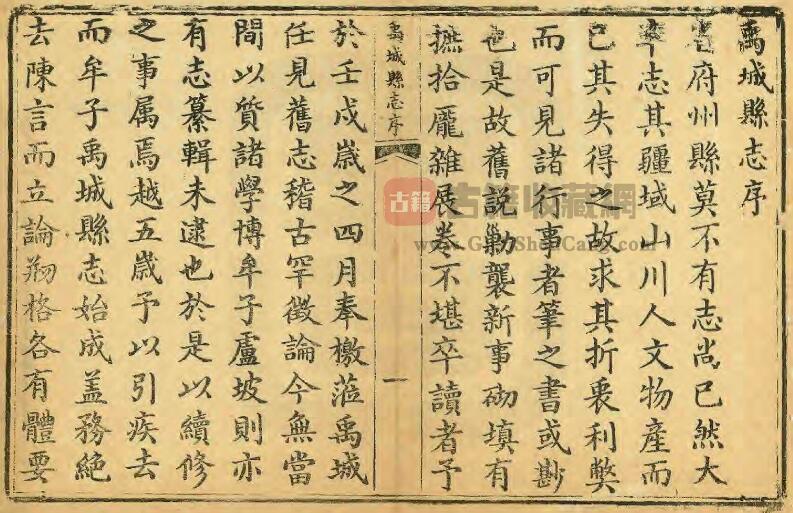 禹城縣志序
省府州縣莫不有志尚已然大
率志其疆域山川人文物產而
已其失得之故求其折衷利獘
而可見諸行事者筆之書或尠
也是故舊說勦襲新事砌填有
摭拾龎雜展卷不堪卒讀者予
禹城縣志序
一
於壬戌嵗之四月奉檄蒞禹城
任見舊志稽古罕徵論今無當
間以質諸學博牟子盧坡則亦
有志纂輯未逮也於是以續修
之事属焉越五嵗予以引疾去
而牟子禹城縣志始成盖務絶
去陳言而立論剏格各有體要
古籍
古籍收藏網